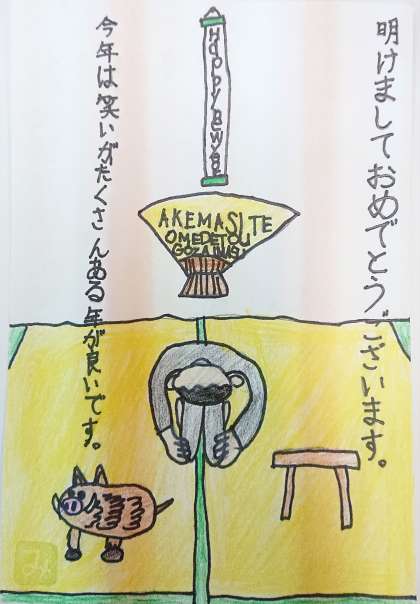 明けましておめでとうございます。
今年は笑いがたくさんある年が良いです。
AKEMASITE
OMEDETOU